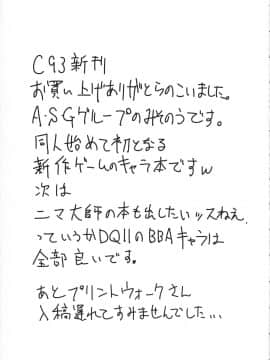 C93新刊
お買い上げありがとらのこいました。
A・S・Gグループのみそのうです。
同人始めて初となる
新作ゲームのキャラ本ですw
次は
ニマ大師の本も出したいッスねえ.
っていうかDQ11のBBAキャラは
全部良いです。
あとプリントウォークさん
入稿遅れてすみませんでした...